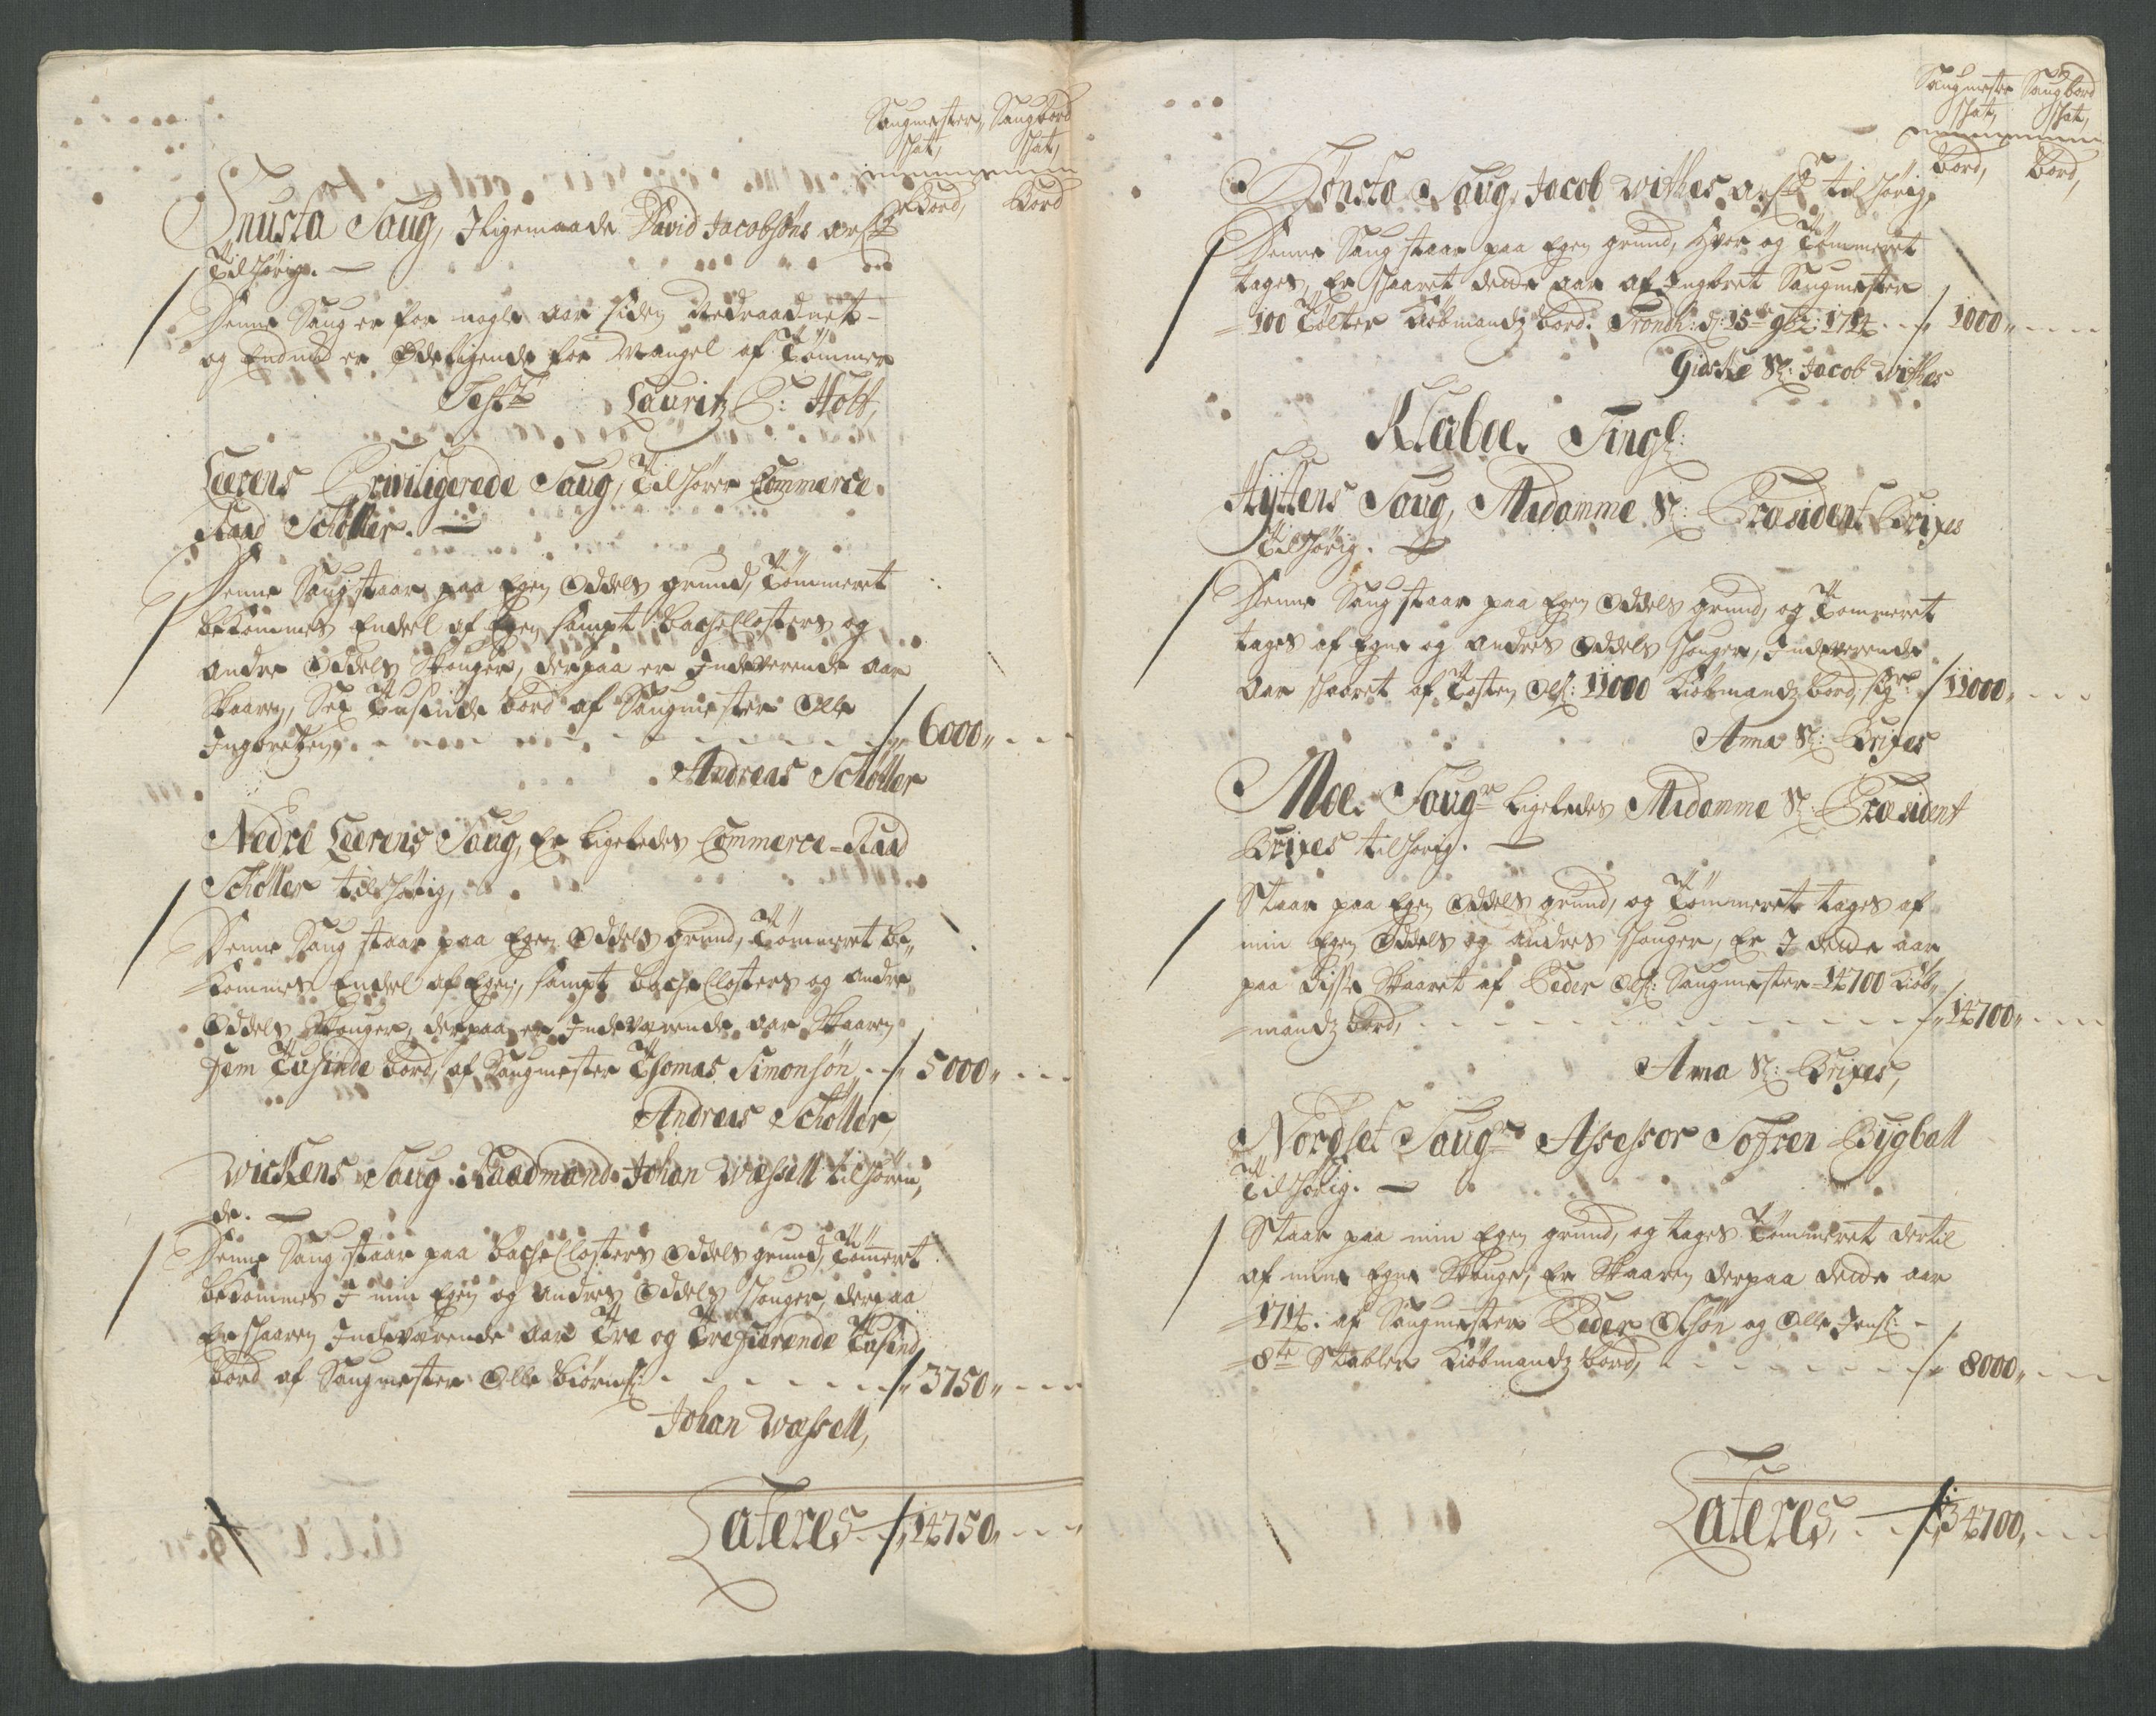 Saugmester, Saugbord
skat, skat,
Bord, Bord
Snusta Saug, Iligemaade David Jacobsøns
Tilhørig.
Denne Saug er for nogle aar siden Nedraadnet
og Endnu er Ødeligende for Mangel af Tømmer
Test Lauritz C: Holt,
Leerens Priviligerede Saug, Tilhører Commerce
Raad Schøller.
Denne Saug staar paa Egen Oddels grund, Tømmeret
bekommes Endeel af Egen, sampt Bache Closters og
andre Oddels Skouger, derpaa er Indeverende aar
Skaaren, Sex Tusinde bord af Saugmester Olle
Ingbretzen, 6000
Andreas Schøller
Nedre Leerens Saug, Er ligeledes Commerce-Raad
Schøller tilhørig,
Denne Saug staar paa Egen Oddels Grund, Tømeret be-
kommes Endeel af Egen, sampt Bache Closters og andre
Oddels Skouger, derpaa er Indeværende aar Skaaren
Fem Tusinde bord, af Saugmester Thomas Simonsøn 5000
Andreas Schøller
Wickens Saug Raadmand Johan Wessell tilhøren,
de.
Denne Saug staar paa Bache Closters Oddels grund, Tømeret
bekommes I min Egen og andres Oddels skouger, derpaa
Er skaaren Indeværende aar Tre og Trefierende Tusind
bord af Saugmester Olle Biørns: 3750
Johan Wessell,
Lateres 14750
Saugmester Saugbord
skat, skat,
Bord, Bord,
Sønsta Saug, Jacob Withes tilhørig,
Denne Saug staar paa Egen grund, hvor og Tømmeret
tages, Er skaaret dette aar af Ingbret Saugmester
100 Tølter Kiøbmandz bord. Trondh: d: 15de 9br: 1714 1000
Gidske Sl: Jacob Withes
Klæboe Tingl:
Hyttens Saug, Madamme Sl: Præsident Brixes
Tilhørig.
Denne Saug staar paa Egen Oddels grund, og Tømmeret
tages af Egne og andres Oddels skouger, Indeværende
aar skaaret af Tosten Ols: 11000 Kiøbmandz bord, 11000
Anna Sl: Brixes
Moe Saug Ligeledes Madamme Sl: Præsident
Brixes tilhørig.
Staar paa Egen Oddels grund, og Tømmeret tages af
min Egen Oddels og andres skouger, Er I dette aar
paa disse Skaaret af Peder Ols: Saugmester 14700 Kiøb-
mandz bord, 14700
Anna Sl: Brixes,
Nordset Saug Assessor Søfren Bygball
Tilhørig.
Staar paa min Egen grund, og tages Tømmeret dertil
af mine Egne Skouge, Er Skaaren derpaa dette aar
1714. af Saugmester Peder Olsøn og Olle Jens:
8te Stabler Kiøbmandz bord, 8000
Lateres, 34700